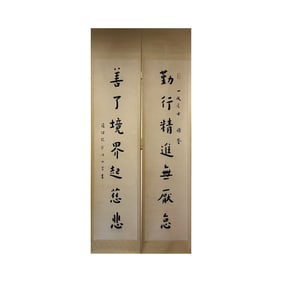 勤行精進無厭怠
善了境界起慈悲